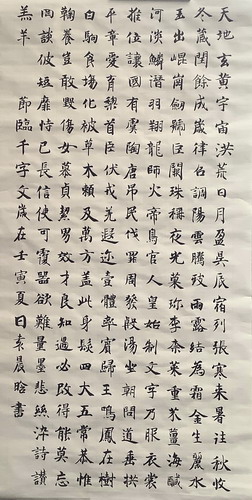 天地玄黃宇宙洪荒日月盈昃辰宿列張寒來暑往秋收
冬藏閏餘成歲律呂調陽雲騰致雨露結為霜金生麗水
玉出崐崗劍號巨闕珠稱夜光菓珍李柰菜重芥薑海鹹
河淡鱗潛羽翔龍師火帝鳥官人皇始制文字乃服衣裳
推位讓國有虞陶唐弔民伐罪周發殷湯坐朝問道垂拱
平章愛育黎首臣伏戎羌遐邇壹體率賓歸王鳴鳳在樹
白駒食場化被草木賴及萬方蓋此身髮四大五常恭惟
鞠養豈敢毀傷女慕貞絜男效才良知過必改得能莫忘
罔談彼短靡恃己長信使可覆器欲難量墨悲絲染詩讚
羔羊 節臨千字文歲在壬寅夏日袁晨晗書